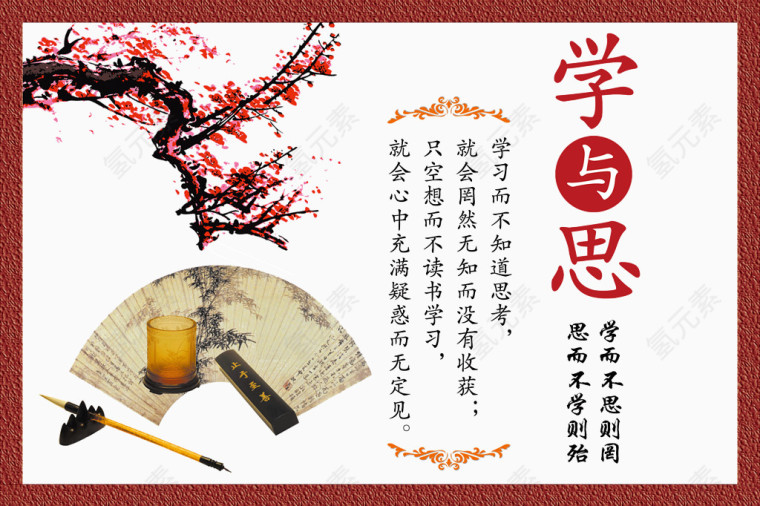 学与思
学而不思则罔
思而不学则殆
学习而不知道思考，
就会罔然无知而没有收获；
只空想而不读书学习，
就会心中充满疑惑而无定见。
止于至善
氢元素